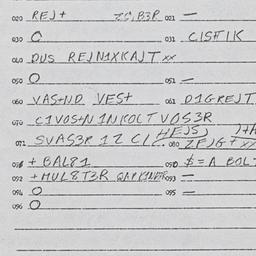 020 REJ+ ZC.B3R 021 —
030 O 031 CISHIK
040 DUS REJNIXKAJT xx
050 O 051 —
060 VAS+ND VEST 061 D1GREJT
070 C1VOS+N INKOLT VOS3R
071 SVAS3R 12 CIC. HEJS)
080 ZFJG+ xx
09 + BAL81 090 $=A BOL
092 +MUL8T3R 093 —
094 O 095 —
096 O